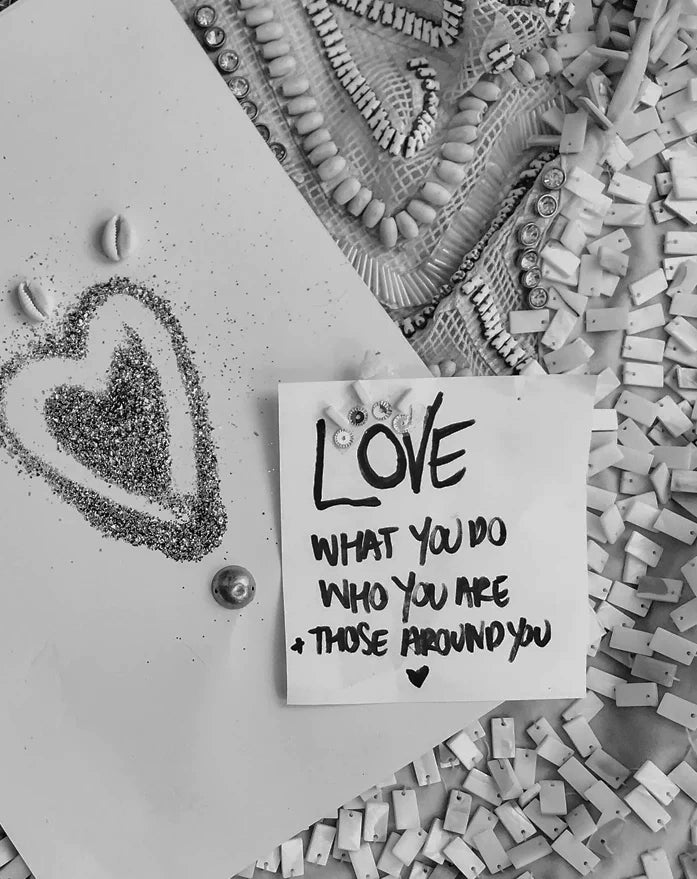 LOVE
WHAT YOU DO
WHO YOU ARE
+ THOSE AROUND YOU
♥